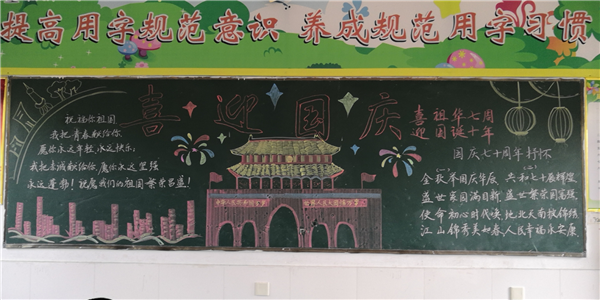 提高用字规范意识 养成规范用字习惯
喜迎国庆
祝福你祖国
我把青春献给你
愿你永远年轻,永远快乐,
我把赤诚献给你,愿你永远坚强
永远蓬勃!祝愿我们的祖国繁荣昌盛!
中华人民共和国万岁
世界人民大团结万岁
喜 祖 华 七 周
迎 国 诞 十 年
国庆七十周年抒怀
金秋华国庆华辰 共和七十展辉煌
盛世家园满目新 盛世繁荣国富强
使命初心时代唤 地北天南披锦绣
江山锦秀美如春 人民幸福永安康